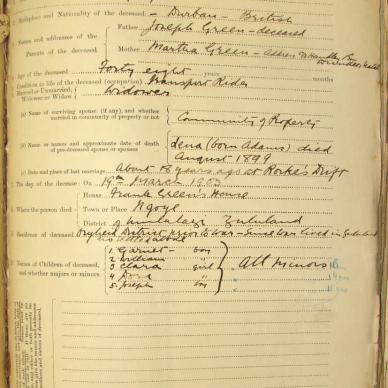 Birthplace and Nationality of the deceased:— Durban — British
Names and addresses of the Parents of the deceased
Father Joseph Green — deceased
Mother Martha Green — Address
Age of the deceased Forty eight years months
Condition in life of the deceased (occupation) Transport Rider
Married or Unmarried, Widower or Widow Widower
(a) Name of surviving spouse (if any), and whether married in community of property or not
Community of Property
(b) Name or names and approximate date of death of pre-deceased spouse or spouses
Lena (born Adams) died
August 1899
(c) Date and place of last marriage. about 18 years ago at Rorke's Drift
The day of the decease:— On 19th March
When the person died:—
House Frank Green's House
Town or Place Ngoye
District Zululand
Residence of deceased. Vryheid District prior to war — Since war lived in Zululand
no settled abode
Names of Children of deceased, and whether majors or minors
1. Garnet — boy
2 William "
3 Clara girl
4 Dora "
5 Joseph
All minors